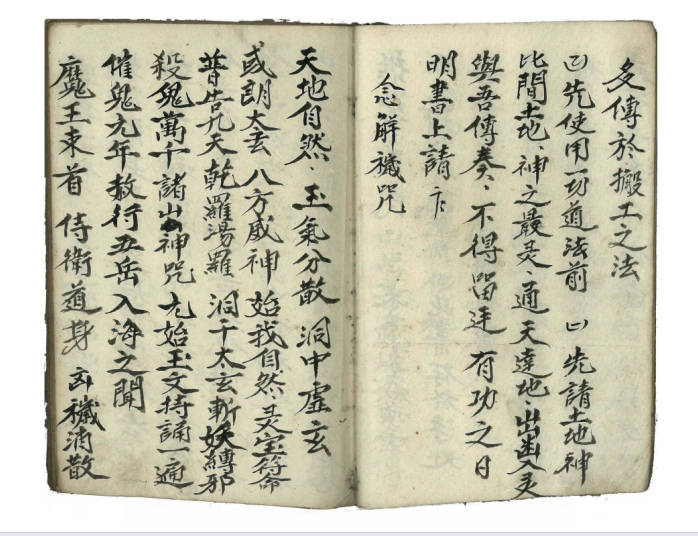 文傳於搬工之法
凹先使用一切道法前 凹先請土地神
此間土地、神之最灵、通天達地、出幽入灵
與吾傳奏、不得留连 有功之日
明書上請 卞
念解穢咒
天地自然、玉氣分散 洞中虚玄
或朗太玄 八方威神 始我自然 灵宝符命
普告九天 乾羅湯羅 洞干太玄 斬妖縛邪
殺鬼萬千 諸山神咒 元始玉文 持誦一遍
催鬼九年 敕行五岳 入海之聞
魔王束首 侍衛道身 凶穢消散